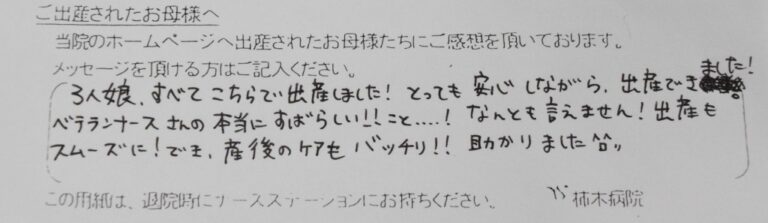 ご出産されたお母様へ
当院のホームページへ出産されたお母様たちにご感想を頂いております。
メッセージを頂ける方はご記入ください。
3人娘、すべてこちらで出産しました! とっても安心しながら、出産できました!
ベテランナースさんの本当にすばらしい!!こと....! なんとも言えません!出産も
スムーズに!でき、産後のケアもバッチリ!! 助かりました^o^。。
この用紙は、退院時にナースステーションにお持ちください。 柿木病院